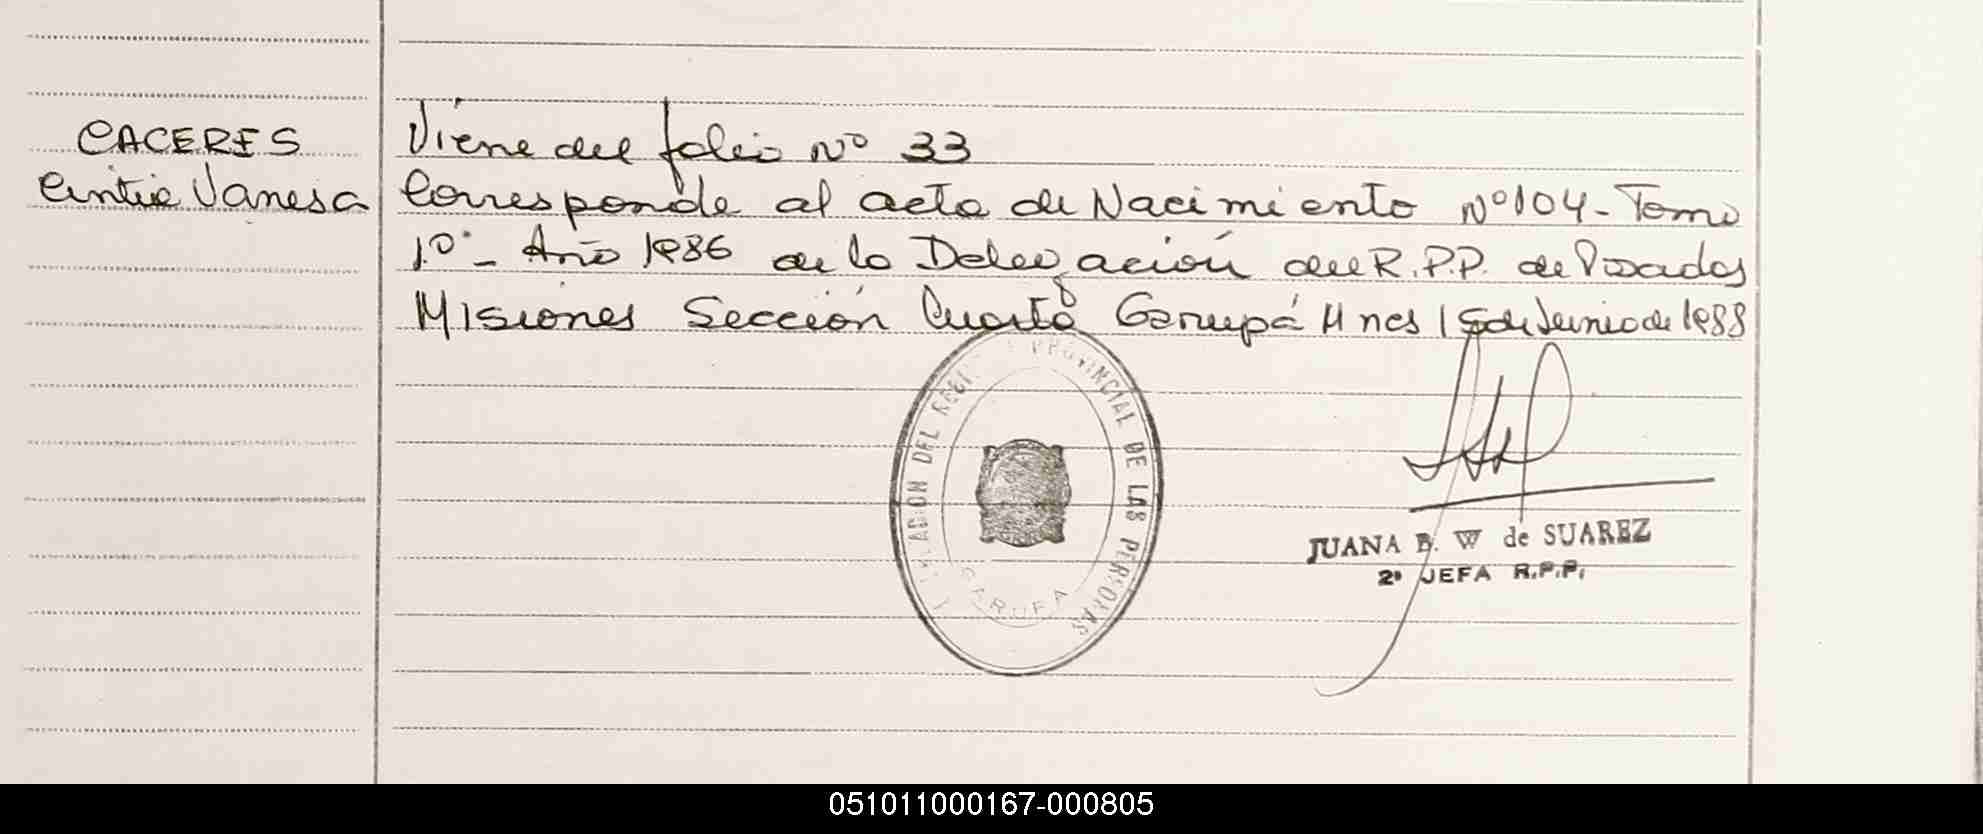 CACERES
Cintia Vanesa
Viene del folio Nº 33
Corresponde al acta de Nacimiento Nº 104 - Tomo
1º - Año 1986 de la Delegación del R.P.P. de Posadas
Misiones Sección Cuarta Garupá Mnes 15 de Junio de 1988
PROVINCIAL DE LAS PERSONAS
DEL
GARUPA
JUANA B. W de SUAREZ
2ª JEFA R.P.P.
051011000167-000805